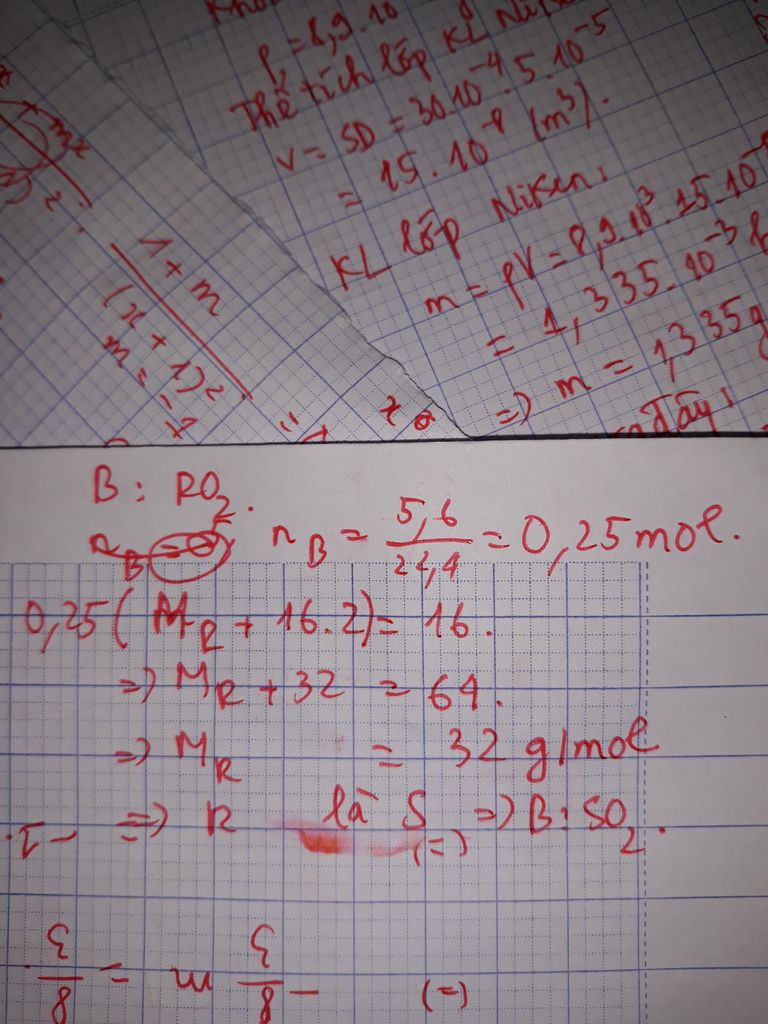 ρ = 8,9.10
Thể tích lớp KL Niken
V = SD = 30.10⁻⁴.5.10⁻⁵
= 15.10⁻⁸ (m³).
KL lớp Niken:
m = ρV = 8,9.10³.15.10⁻⁸
= 1,335.10⁻³
=> m = 1,335g
1 + m
(x + 1)²
B : RO₂.
n_B = 5,6/22,4 = 0,25 mol.
0,25( M_R + 16.2) = 16.
=> M_R + 32 = 64.
=> M_R = 32 g/mol
=> R là S => B : SO₂.
(=)
(=) - 8/3 m = 8/3